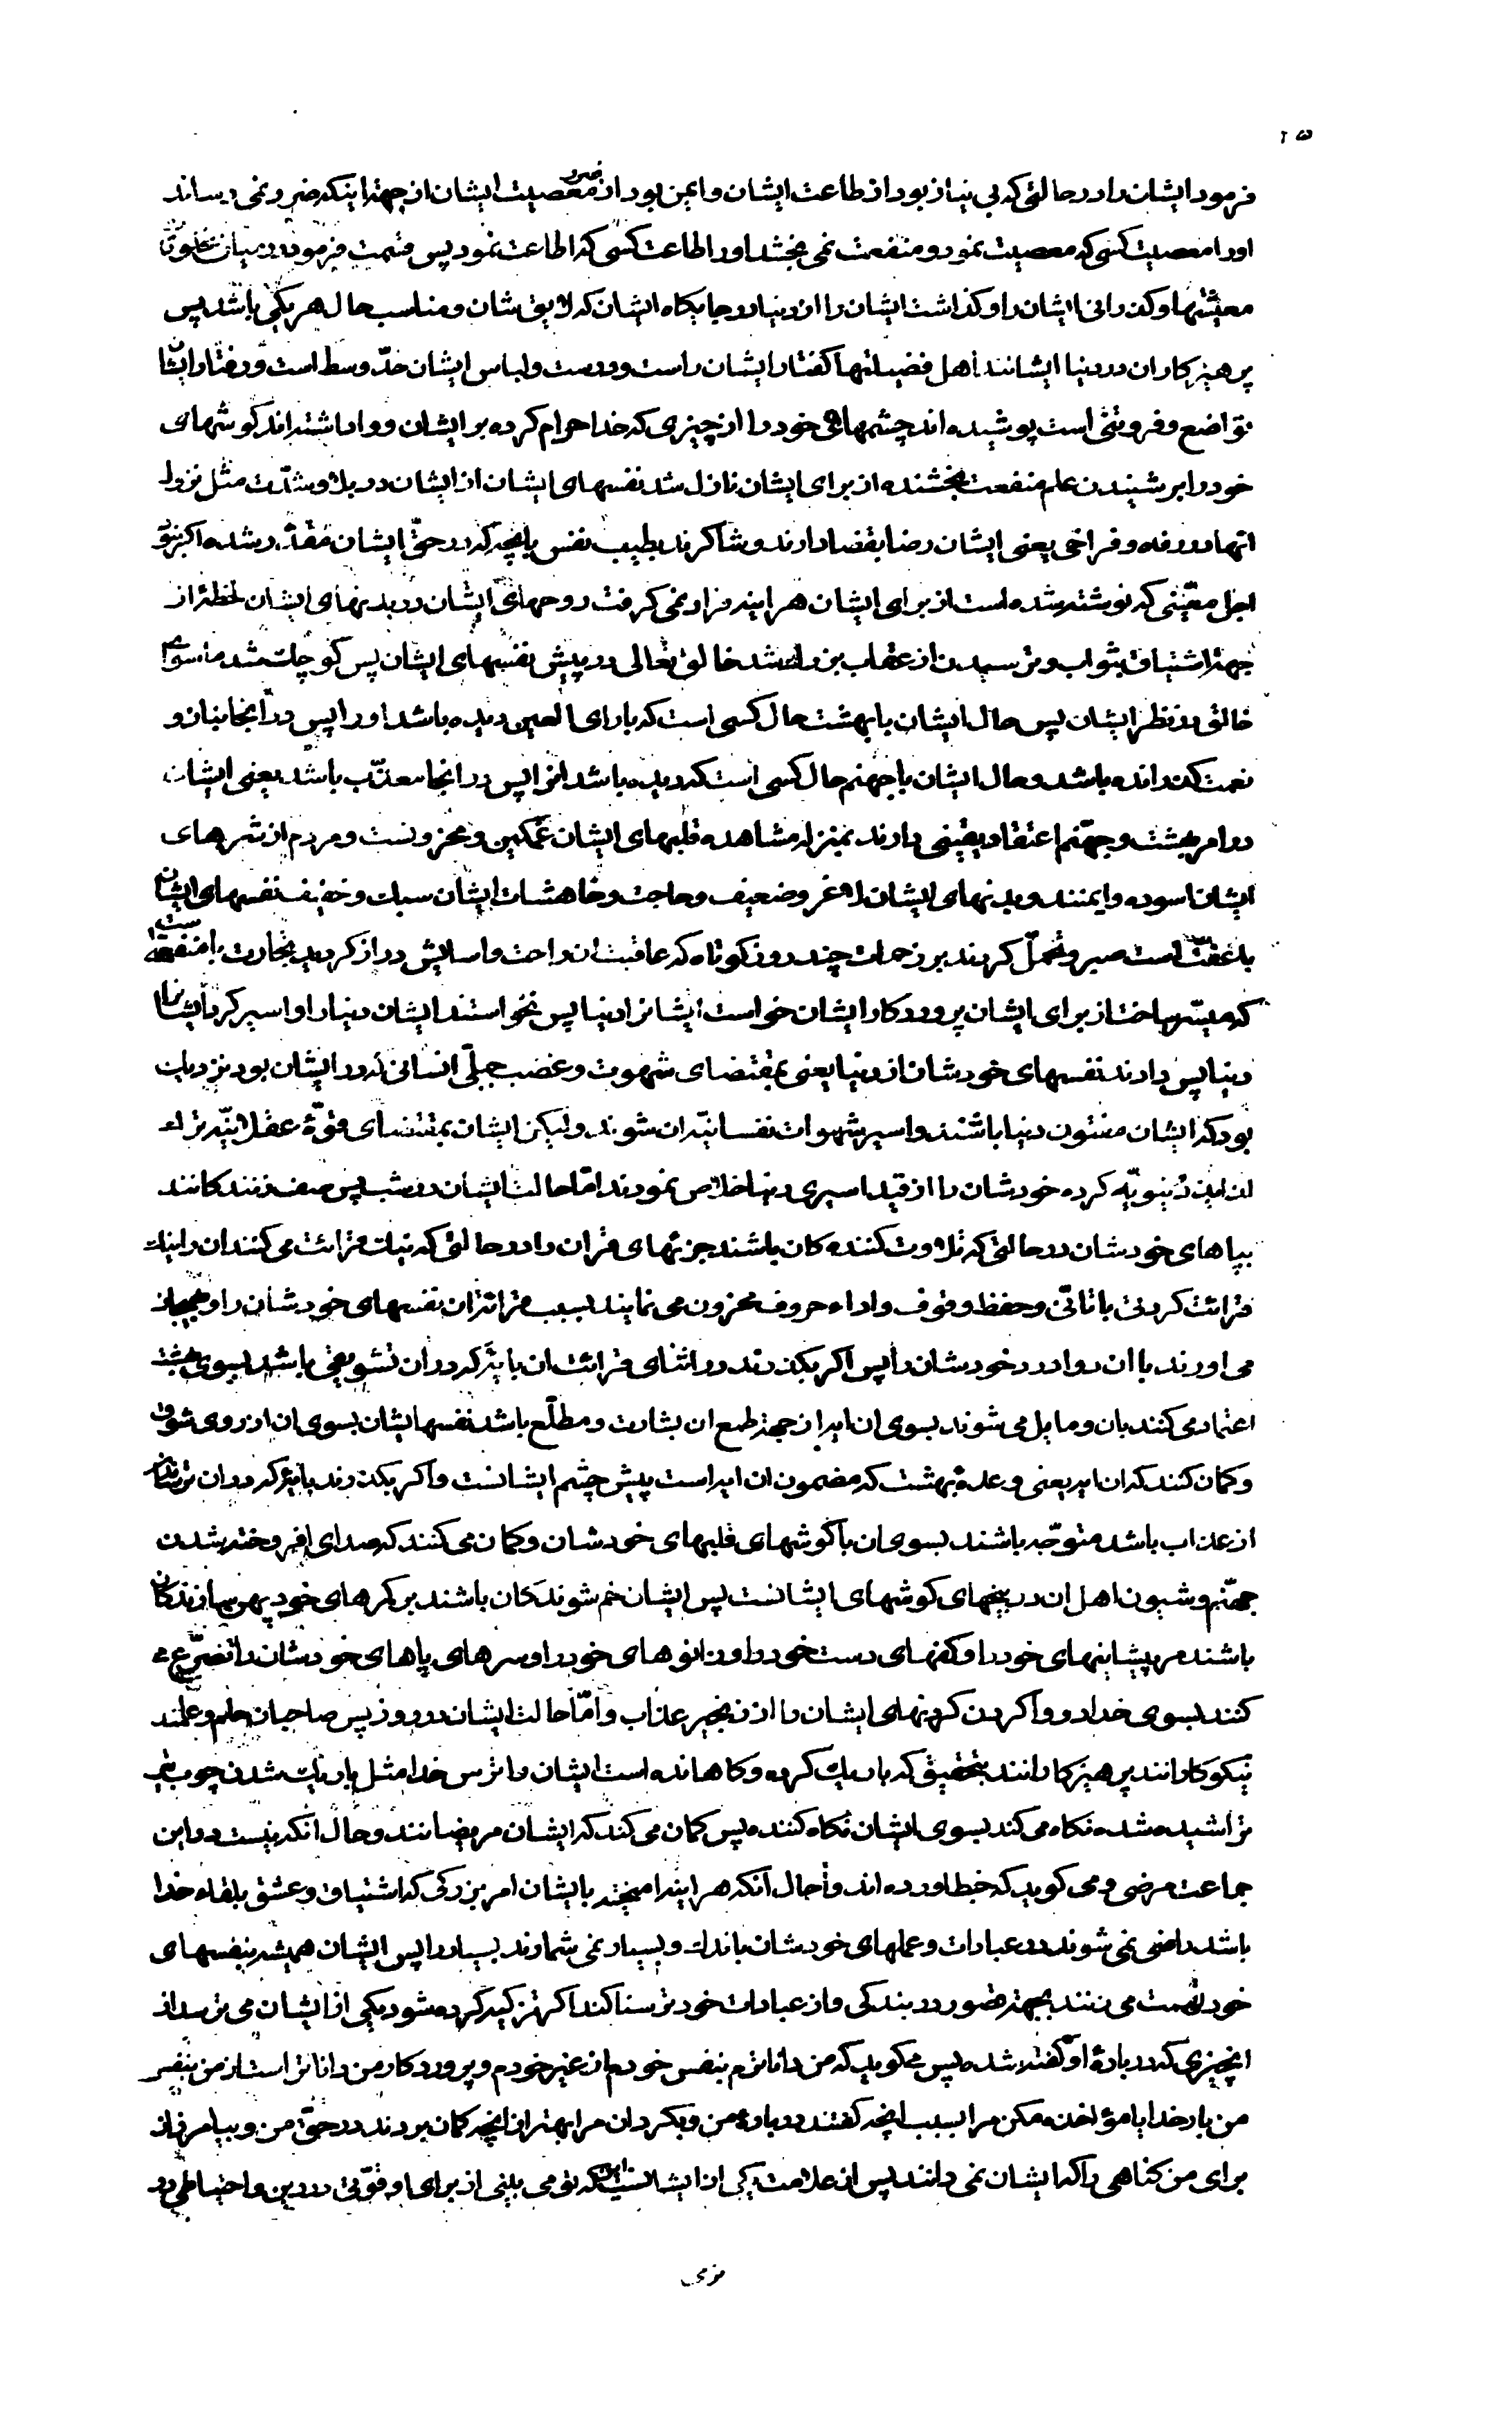 فرمود ایشان را در حالتی که بی نیاز بود از طاعت ایشان و ایمن بود از ضرر معصیت ایشان از جهة اینکه ضرر نمی رساند
او را معصیت کسی که معصیت نمود و منفعت نمی بخشد او را طاعت کسی که اطاعت نمود پس قسمت فرمود در میان مخلوق
معیشتها و کذرانی ایشان را و کذاشت ایشان را از دنیا در جایکاه ایشان که لایق شان و مناسب حال هر یکی باشد پس
پرهیزکاران در دنیا ایشانند اهل فضیلتها کفتار ایشان راست و درست و لباس ایشان حدّ وسط است و رفتار ایشان
تواضع و فروتنی است پوشیده اند چشمهای خود را از چیزی که خدا حرام کرده بر ایشان و واداشته اند کوشهای
خود را بر شنیدن علم منفعت بخشنده از برای ایشان نازل شد نفسهای ایشان از ایشان در بلا و شدّت مثل نزول
انها در رفه و فراخی یعنی ایشان رضا بقضا دارند و شاکرند بطیب نفس بانچه که در حقّ ایشان مقدّر شده اکر نبود
اجل معیّنی که نوشته شده است از برای ایشان هر اینه قرار نمی کرفت روحهای ایشان در بدنهای ایشان لحظهٔ از
جهة اشتیاق بثواب و ترسیدن از عقاب بزرك شد خالق تعالی در پیش نفسهای ایشان پس کوچك شد ماسوای
خالق در نظر ایشان پس حال ایشان با بهشت حال کسی است که بارای العین دیده باشد او را پس در انجا بناز و
نعمت کذرانده باشد و حال ایشان با جهنم حال کسی است که دیده باشد انرا پس در انجا معذّب باشد یعنی ایشان
در امر بهشت و جهنّم اعتقاد یقینی دارند بمنزله مشاهده قلبهای ایشان غمکین و محزونست و مردم از شرهای
ایشان اسوده و ایمنند و بدنهای ایشان لاغر و ضعیف و حاجت و خاهشات ایشان سبك و خفیف نفسهای ایشان
با عفّت است صبر و تحمّل کردند بر زحمات چند روز کوتاه که عاقبت ان راحت و اسایش دراز کردید تجارت با منفعة است
که میسّر ساخت از برای ایشان پروردکار ایشان خواست ایشانرا دنیا پس نخواستند ایشان دنیا را و اسیر کرد ایشانرا
دنیا پس دادند نفسهای خودشان از دنیا یعنی بمقتضای شهوت و غضب جبلّی انسانی که در ایشان بود نزدیك
بود که ایشان مفتون دنیا باشند و اسیر شهوات نفسانیّه ان شوند و لیکن ایشان بمقتضای قوّهٔ عقلانیّه ترك
لذایذ دنیویّه کرده خودشان را از قید اسیری دنیا خلاص نمودند امّا حالت ایشان در شب پس صف زنندکانند
بپاهای خودشان در حالتی که تلاوت کننده کان باشند جزئهای قران را در حالتی که نیك قرائت می کنند ان را نیك
قرائت کردنی با تانّی و حفظ وقوف و اداء حروف محزون می نمایند بسبب قرائت ان نفسهای خودشان را و بهیجان
می اورند با ان دوا درد خودشان را پس اکر بکذرند در اثنای قرائت ان بایهٔ که در ان تشویقی باشد بسوی بهشت
اعتماد می کنند بان و مایل می شوند بسوی ان ایه از جهة طمع ان بشارت و مطلّع باشد نفسهایشان بسوی ان از روی شوق
و کمان کنند که ان ایه یعنی وعدهٔ بهشت که مضمون ان ایه است پیش چشم ایشانست و اکر بکذرند بایهٔ که در ان ترسانیدن
از عذاب باشد متوجّه باشند بسوی ان با کوشهای قلبهای خودشان و کمان می کنند که صدای افروخته شدن
جهنّم و شیون اهل ان در بیخهای کوشهای ایشانست پس ایشان خم شوندکان باشند بر کمرهای خود پهن سازندکان
باشند مر پیشانیهای خود را و کفهای دست خود را و زانوهای خود را و سرهای پاهای خودشان را تضرّع می
کنند بسوی خدا در واکردن کردنهای ایشان را از زنجیر عذاب و امّا حالت ایشان در روز پس صاحبان حلم و علمند
نیکوکارانند پرهیزکارانند بتحقیق که باریك کرده و کاهانده است ایشان را ترس خدا مثل باریك شدن چوب تیر
تراشیده شده نکاه می کند بسوی ایشان نکاه کننده پس کمان می کند که ایشان مریضانند و حال انکه نیست در این
جماعت مرضی و می کوید که خبط اورده اند و حال انکه هر اینه امیخته بایشان امر بزرکی که اشتیاق و عشق بلقاء خدا
باشد راضی نمی شوند در عبادات و عملهای خودشان باندك و بسیار نمی شمارند بسیار را پس ایشان همیشه بنفسهای
خود تهمت می زنند بجهة قصور در بندکی و از عبادات خود ترسناکند اکر تزکیه کرده شود یکی از ایشان می ترسد از
انچیزی که در بارهٔ او کفته شده پس میکوید که من داناترم بنفس خودم از غیر خودم و پروردکار من داناتر است از من بنفس
من بار خدایا مؤاخذه مکن مرا بسبب انچه کفتند در بارهٔ من و بکردان مرا بهتر از انچه کمان بردند در حقّ من و بیامرز از
برای من کناهی را که ایشان نمی دانند پس از علامت یکی از ایشان اینست که تو می بینی از برای او قوّتی در دین و احتیاطی در
نرمی